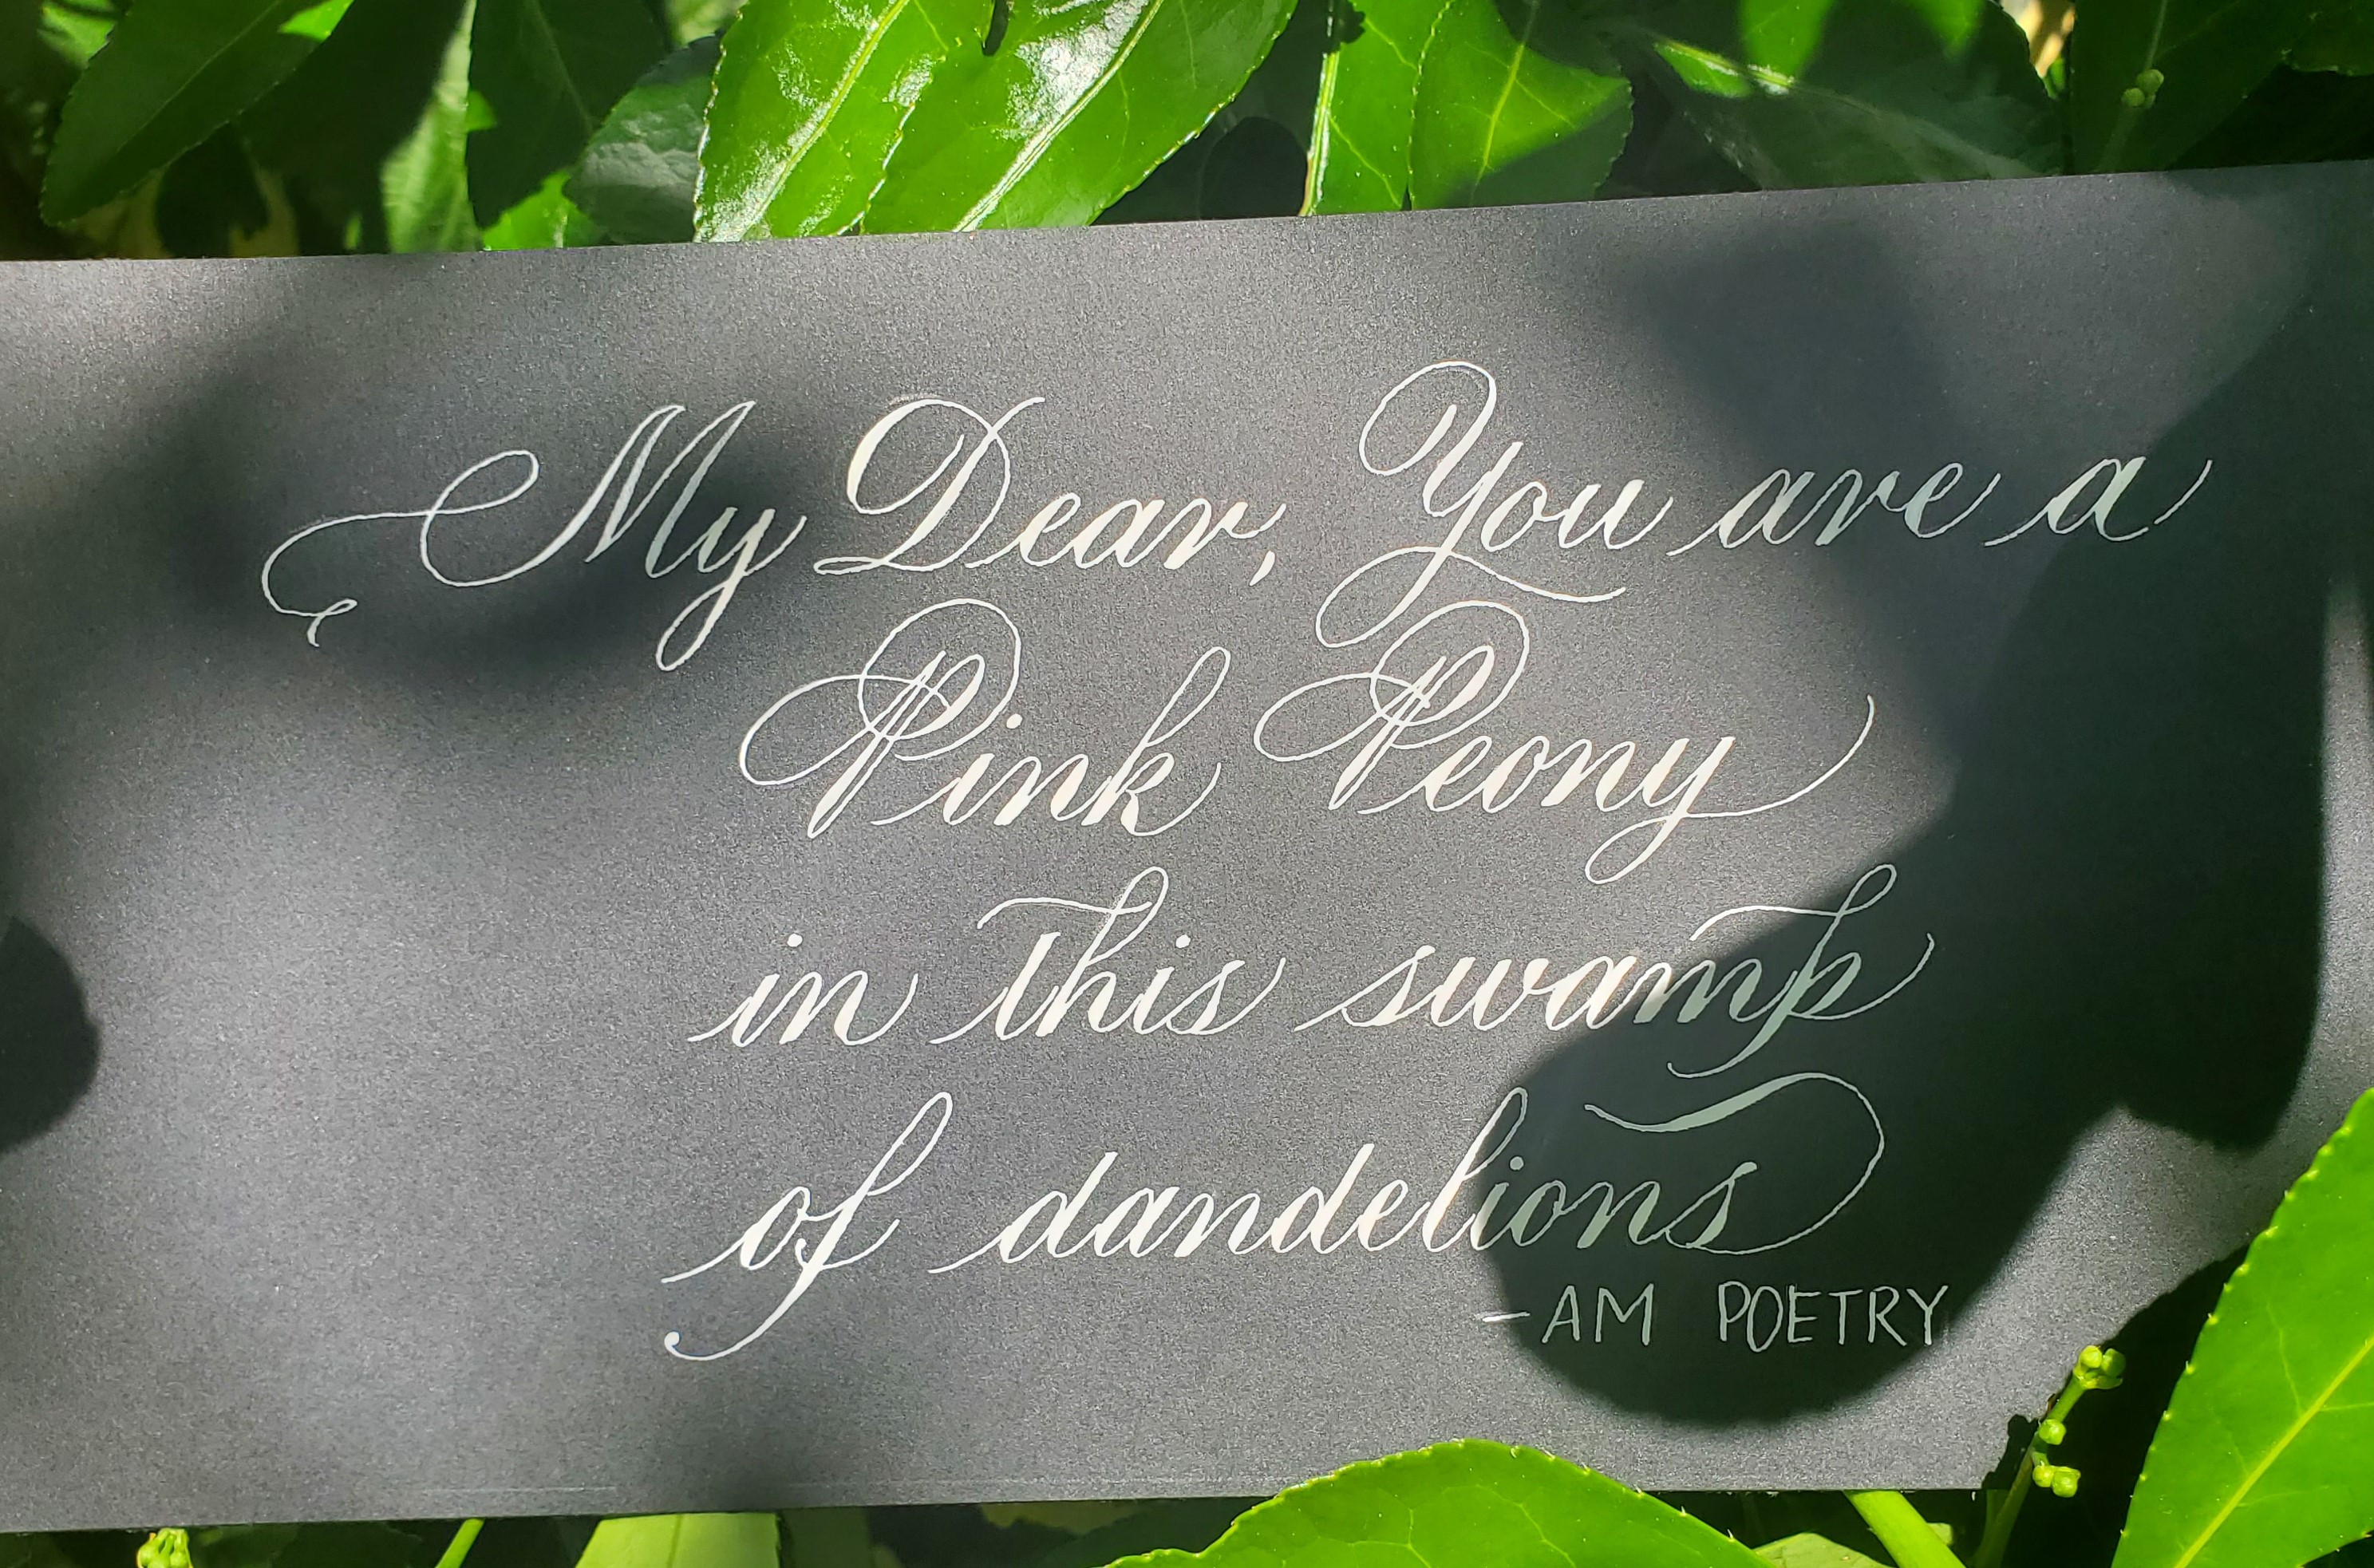 My Dear, You are a
Pink Peony
in this swamp
of dandelions
-AM POETRY